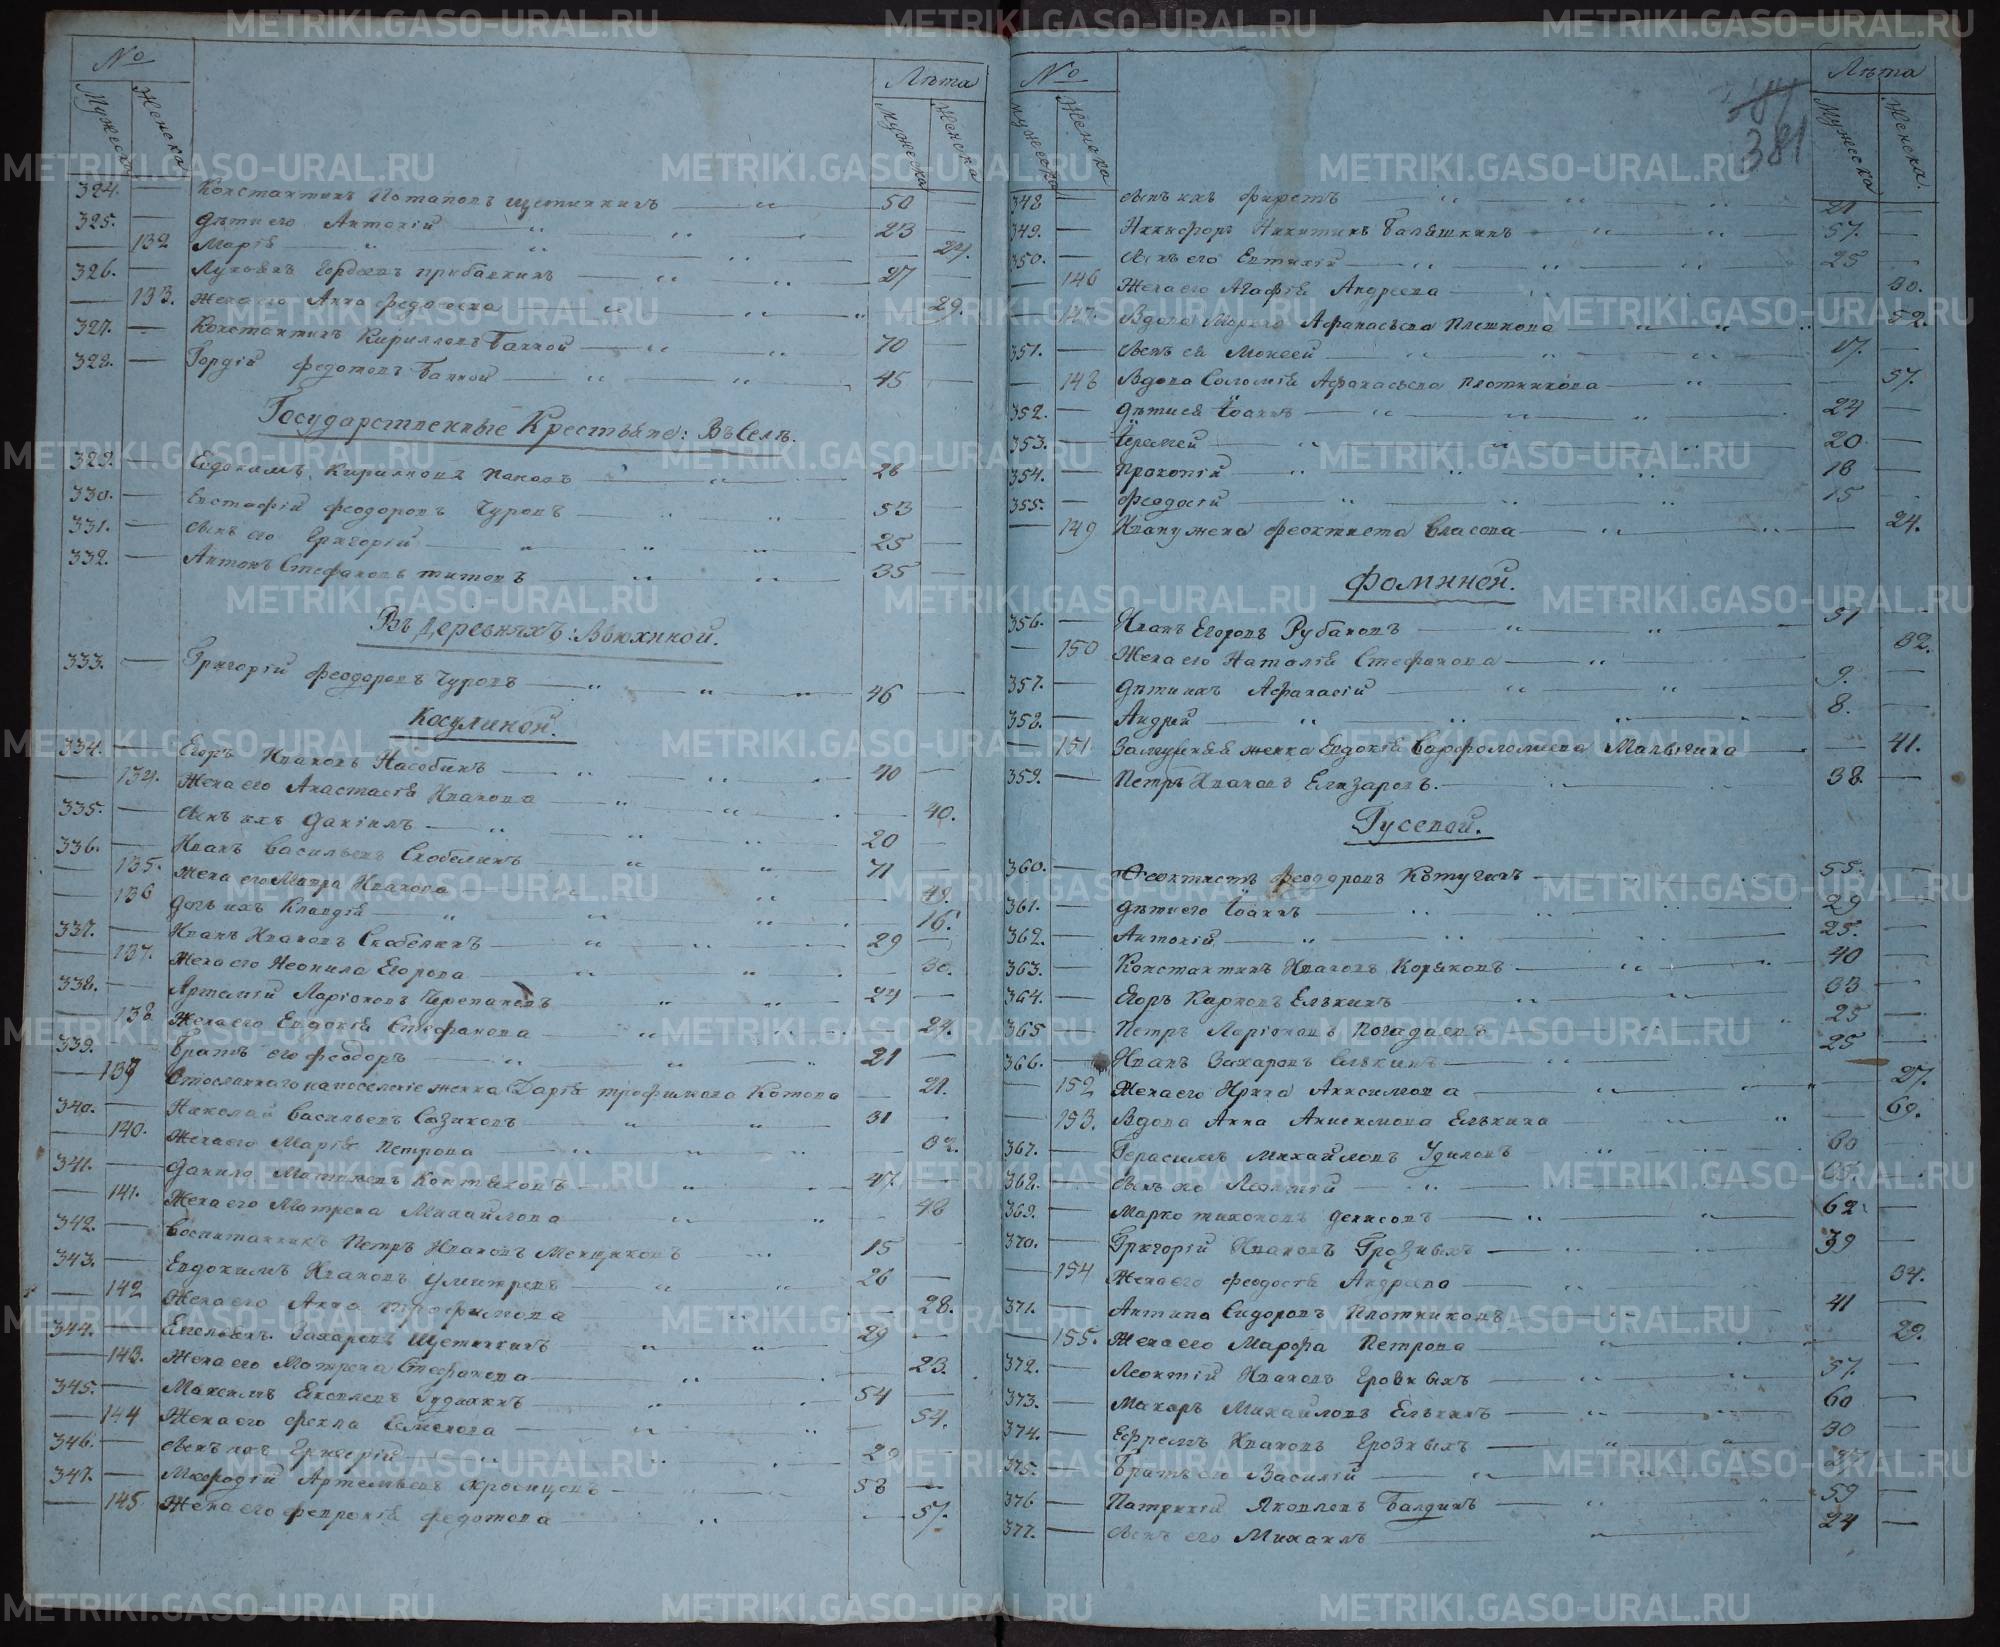 №
Мужеска Женска
Лѣта
Мужеска Женска
324. Константинъ Потаповъ Щетинкинъ 50
325. Дѣти его Антоній 23
132 Марія 24.
326. Лукоянъ Гордѣевъ Прибавкинъ 27
133. Жена его Анна Федосѣева 29.
327. Константинъ Кирилловъ Банной 70
328. Гордій Федотовъ Банной 45
Государственные Крестьяне: Въ Селѣ.
329. Евдокимъ Кирилловъ Пановъ 26
330. Евстафій Феодоровъ Чуровъ 53
331. Сынъ его Григорій 25
332. Антонъ Стефановъ Титовъ 35
Въ деревняхъ: Вьюхиной.
333. Григорій Феодоровъ Чуровъ 46
Косулиной.
334. Егоръ Ивановъ Насобинъ 40
134. Жена его Анастасія Иванова 40.
335. Сынъ ихъ Даніилъ 20
336. Иванъ Васильевъ Скобелинъ 71
135. Жена его Мавра Иванова 49.
136 Дочь ихъ Клавдія 16.
337. Иванъ Ивановъ Скобелинъ 29
137. Жена его Неонила Егорова 30.
338. Артемій Ларіоновъ Черепановъ 24
138 Жена его Евдокія Стефанова 24.
339. Братъ его Феодоръ 21
139 Отосланнаго на поселеніе женка Дарія Трофимова Котова 21.
340. Николай Васильевъ Сазиковъ 31
140. Жена его Марія Петрова 32.
341. Данило Матвѣевъ Коптяковъ 47
141. Жена его Матрена Михайлова 48
342. Воспитанникъ Петръ Ивановъ Менщиковъ 15
343. Евдокимъ Ивановъ 26
142 Жена его Анна Трофимова 28.
344. Емельянъ Захаровъ Щетинкинъ 29
143. Жена его Матрена Стефанова 23.
345. Максимъ Яковлевъ Гудинкинъ 54
144 Жена его Фекла Семенова 54.
346. Сынъ ихъ Григорій 29
347. Меѳодій Артемьевъ 58
145 Жена его Февронія Федотова 57.
№
Мужеска Женска
381
Лѣта
Мужеска Женска.
348 Сынъ ихъ Фирстъ 21
349. Никифоръ Никитинъ Балашкинъ 57.
350. Сынъ его Евтихій 25
146 Жена его Агафія Андреева 30.
147. Вдова Марина Афанасьева Плешкова 52.
351. Сынъ ея Моисей 17.
148 Вдова Соломія Афанасьева Плотникова 57.
352. Дѣти ея Іоаннъ 24
353. Іеремей 20
354. Прокопій 18
355. Феодосій 15
149 Ивану жена Феоктиста Власова 24.
Фоминой.
356. Иванъ Егоровъ Рубановъ 51
150 Жена его Наталія Стефанова 32.
357. Дѣти ихъ Афанасій 9.
358. Андрей 8.
151 Замужняя женка Евдокія Варфоломеева Малыгина 41.
359. Петръ Ивановъ Елизаровъ. 38.
Гусевой.
360. Феоктистъ Феодоровъ Котугинъ 55.
361. Дѣти его Іоаннъ 29
362. Антоній 25.
363. Константинъ Ивановъ Коряковъ 40
364. Егоръ Карповъ Елькинъ 33
365 Петръ Ларіоновъ Погадаевъ 25
366. Иванъ Захаровъ Елькинъ 25
152 Жена его Ирина Анисимова 27.
153. Вдова Анна Анисимова Елькина 69.
367. Герасимъ Михайловъ Удиловъ 60
368. Сынъ его Леонтій 35.
369. Марко Тихоновъ Денисовъ 62
370. Григорій Ивановъ Грозныхъ 39
154 Жена его Феодосія Андреева 34.
371. Антипа Сидоровъ Плотниковъ 41
155. Жена его Марфа Петрова 29.
372. Леонтій Ивановъ Грозныхъ 57.
373. Макаръ Михайловъ Елькинъ 60
374. Ефремъ Ивановъ Грозныхъ 30
375. Братъ его Василій 27
376 Патрикій Яковлевъ Балдинъ 59
377. Сынъ его Михаилъ 24
METRIKI.GASO-URAL.RU